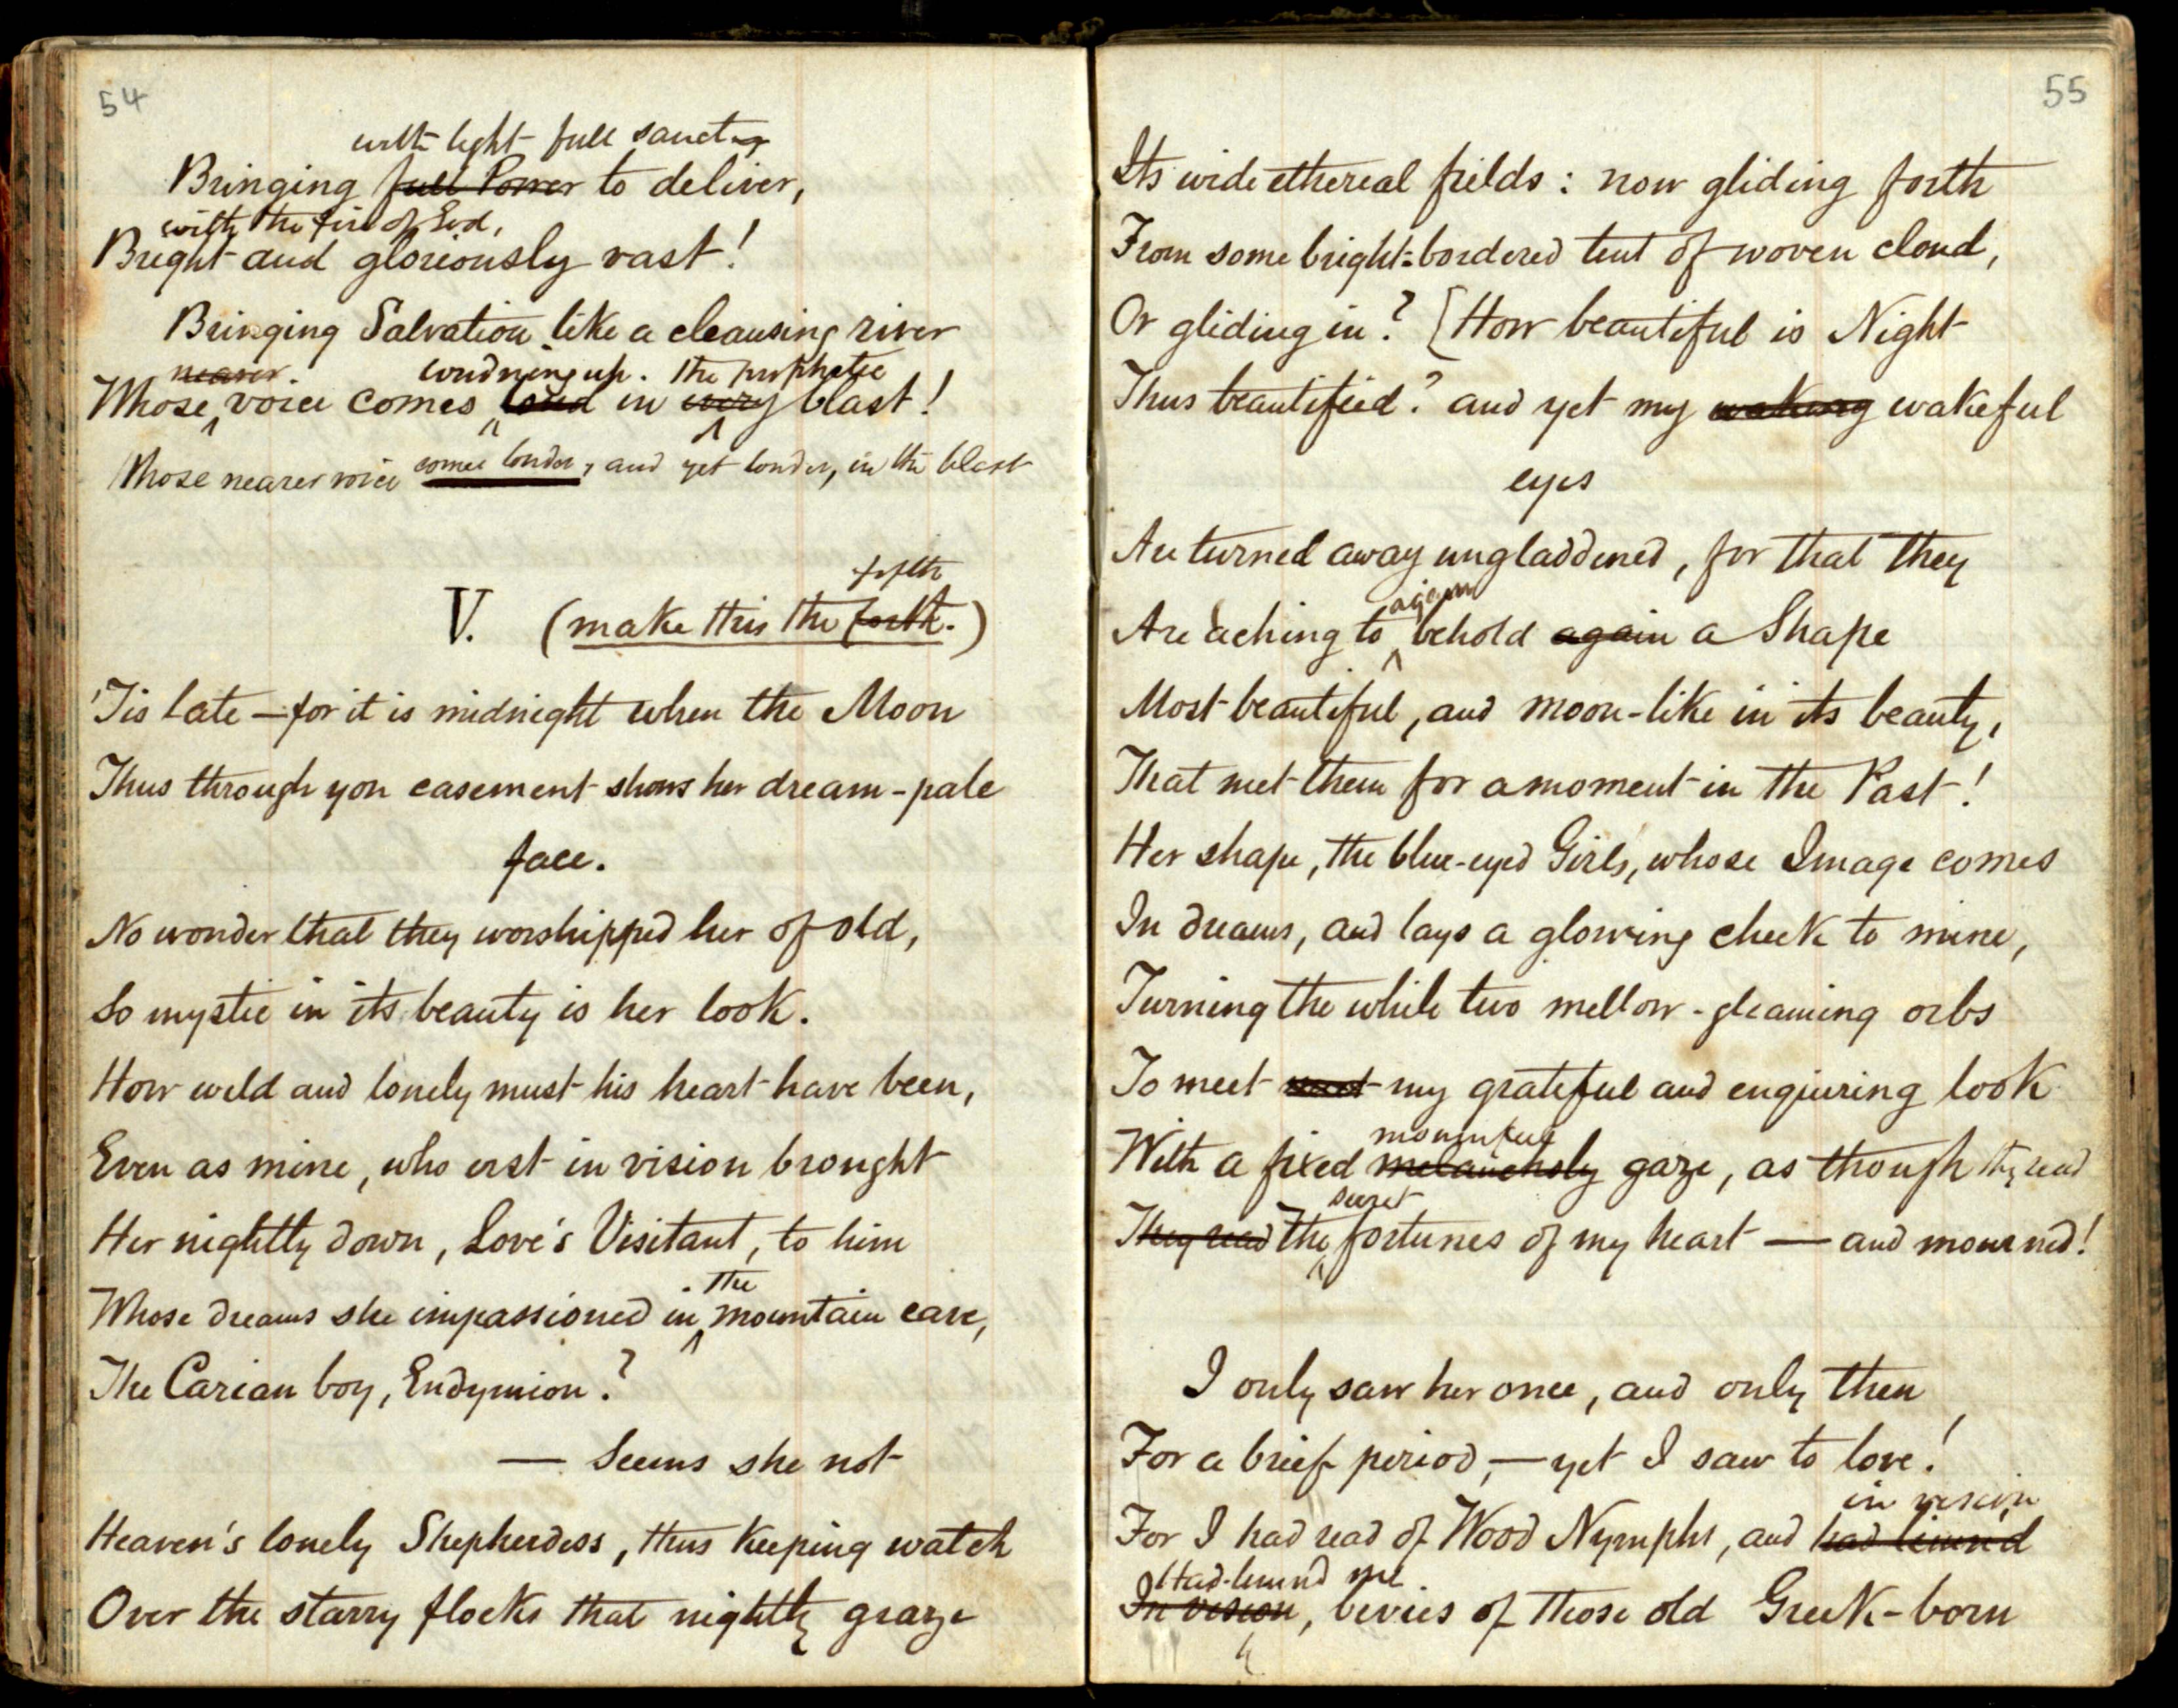 54
with light full sanct
Bringing full Power to deliver,
with the fire of God,
Bright and gloriously vast!
Bringing Salvation like a cleansing river
nearer. up. the prophetic
Whose voice comes loud in every blast!
Whose nearer voice comes louder, and yet louder, in the blast
fifth
V. (make this the forth.)
'Tis late — for it is midnight when the Moon
Thus through yon casement shows her dream-pale
face.
No wonder that they worshipped her of old,
So mystic in its beauty is her look.
How wild and lonely must his heart have been,
Even as mine, who erst in vision brought
Her nightly down, Love's Visitant, to him
the
Whose dreams she impassioned in mountain cave,
The Carian boy, Endymion?
— Seems she not
Heaven's lonely Shepherdess, thus keeping watch
Over the starry flocks that nightly graze
55
Its wide ethereal fields: now gliding forth
From some bright-bordered tent of woven cloud,
Or gliding in? [How beautiful is Night
Thus beautified? and yet my waking wakeful
eyes
Are turned away ungladdened, for that they
again
Are aching to behold again a Shape
Most beautiful, and moon-like in its beauty,
That met them for a moment in the Past!
Her shape, the blue-eyed Girl's, whose Image comes
In dreams, and lays a glowing cheek to mine,
Turning the while two mellow-gleaming orbs
To meet meet my grateful and enquiring look
mournful
With a fixed melancholy gaze, as though they read
secret
They read the fortunes of my heart — and mourned!
I only saw her once, and only then
For a brief period, — yet I saw to love!
in vision
For I had read of Wood Nymphs, and had limn'd
Had limn'd me
In vision, bevies of those old Greek-born